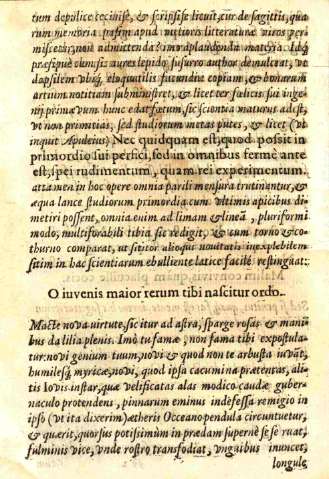 tum depilice cecinisse, & scripsisse licuit, cur de sagittis, qua
rum memoria passim apud vtilioris litteraturæ viros per
miscetur, non admittenda? imò plaudenda materia. Idq́
præsiguè cùm sic aures lepido susurro author demulceat, vt
dapsilem vbiq́; eloquutilis facundiæ copiam, & bonarum
artium notitiam subministret, & licet ter fœlicis sui inge
nij primævum hunc edat fœtum, sic scientia maturus adest,
vt non primitias, sed studiorum metas putes, & licet (vt
inquit Apuleius) Nec quidquam est, quod possit in
primordio sui perfici, sed in omnibus fermè ante
est, spei rudimentum, quam rei experimentum.
attamen in hoc opere omnia parili mensura trutinentur, &
æqua lance studiorum primordia cum vltimis apicibus di
metiri possent, omnia enim ad limam & lineā, pluriformi
modo, multiforabili tibia sic redigit, & cum torno & co
thurno comparat, vt sititor aliosq́ue novitatis inexplebilem
sitim in hac scientiarum ebulliente latice facilè restinguat:
O iuvenis maior rerum tibi nascitur ordo.
Macte nova virtute, sic itur ad astra, sparge rosas & mani
bus da lilia plenis. Imò tu famæ, non fama tibi expostula
tur: novi genium tuum, novi & quod non te arbusta iuvāt,
humilesq́; myricæ, novi, quod ipsa cacumina prætentas, ali
tis Iovis instar, quæ velificatas alas modico caudæ guber-
naculo protendens, pinnarum eminus indefessa remigio in
ipsò (vt ita dixerim) ætheris Oceano pendula circuntuetur,
& quærit, quorsus potissimùm in prædam supernè se se ruat,
fulminis vice, vnde rostro transfodiat, vnguibus inuncet,
longule